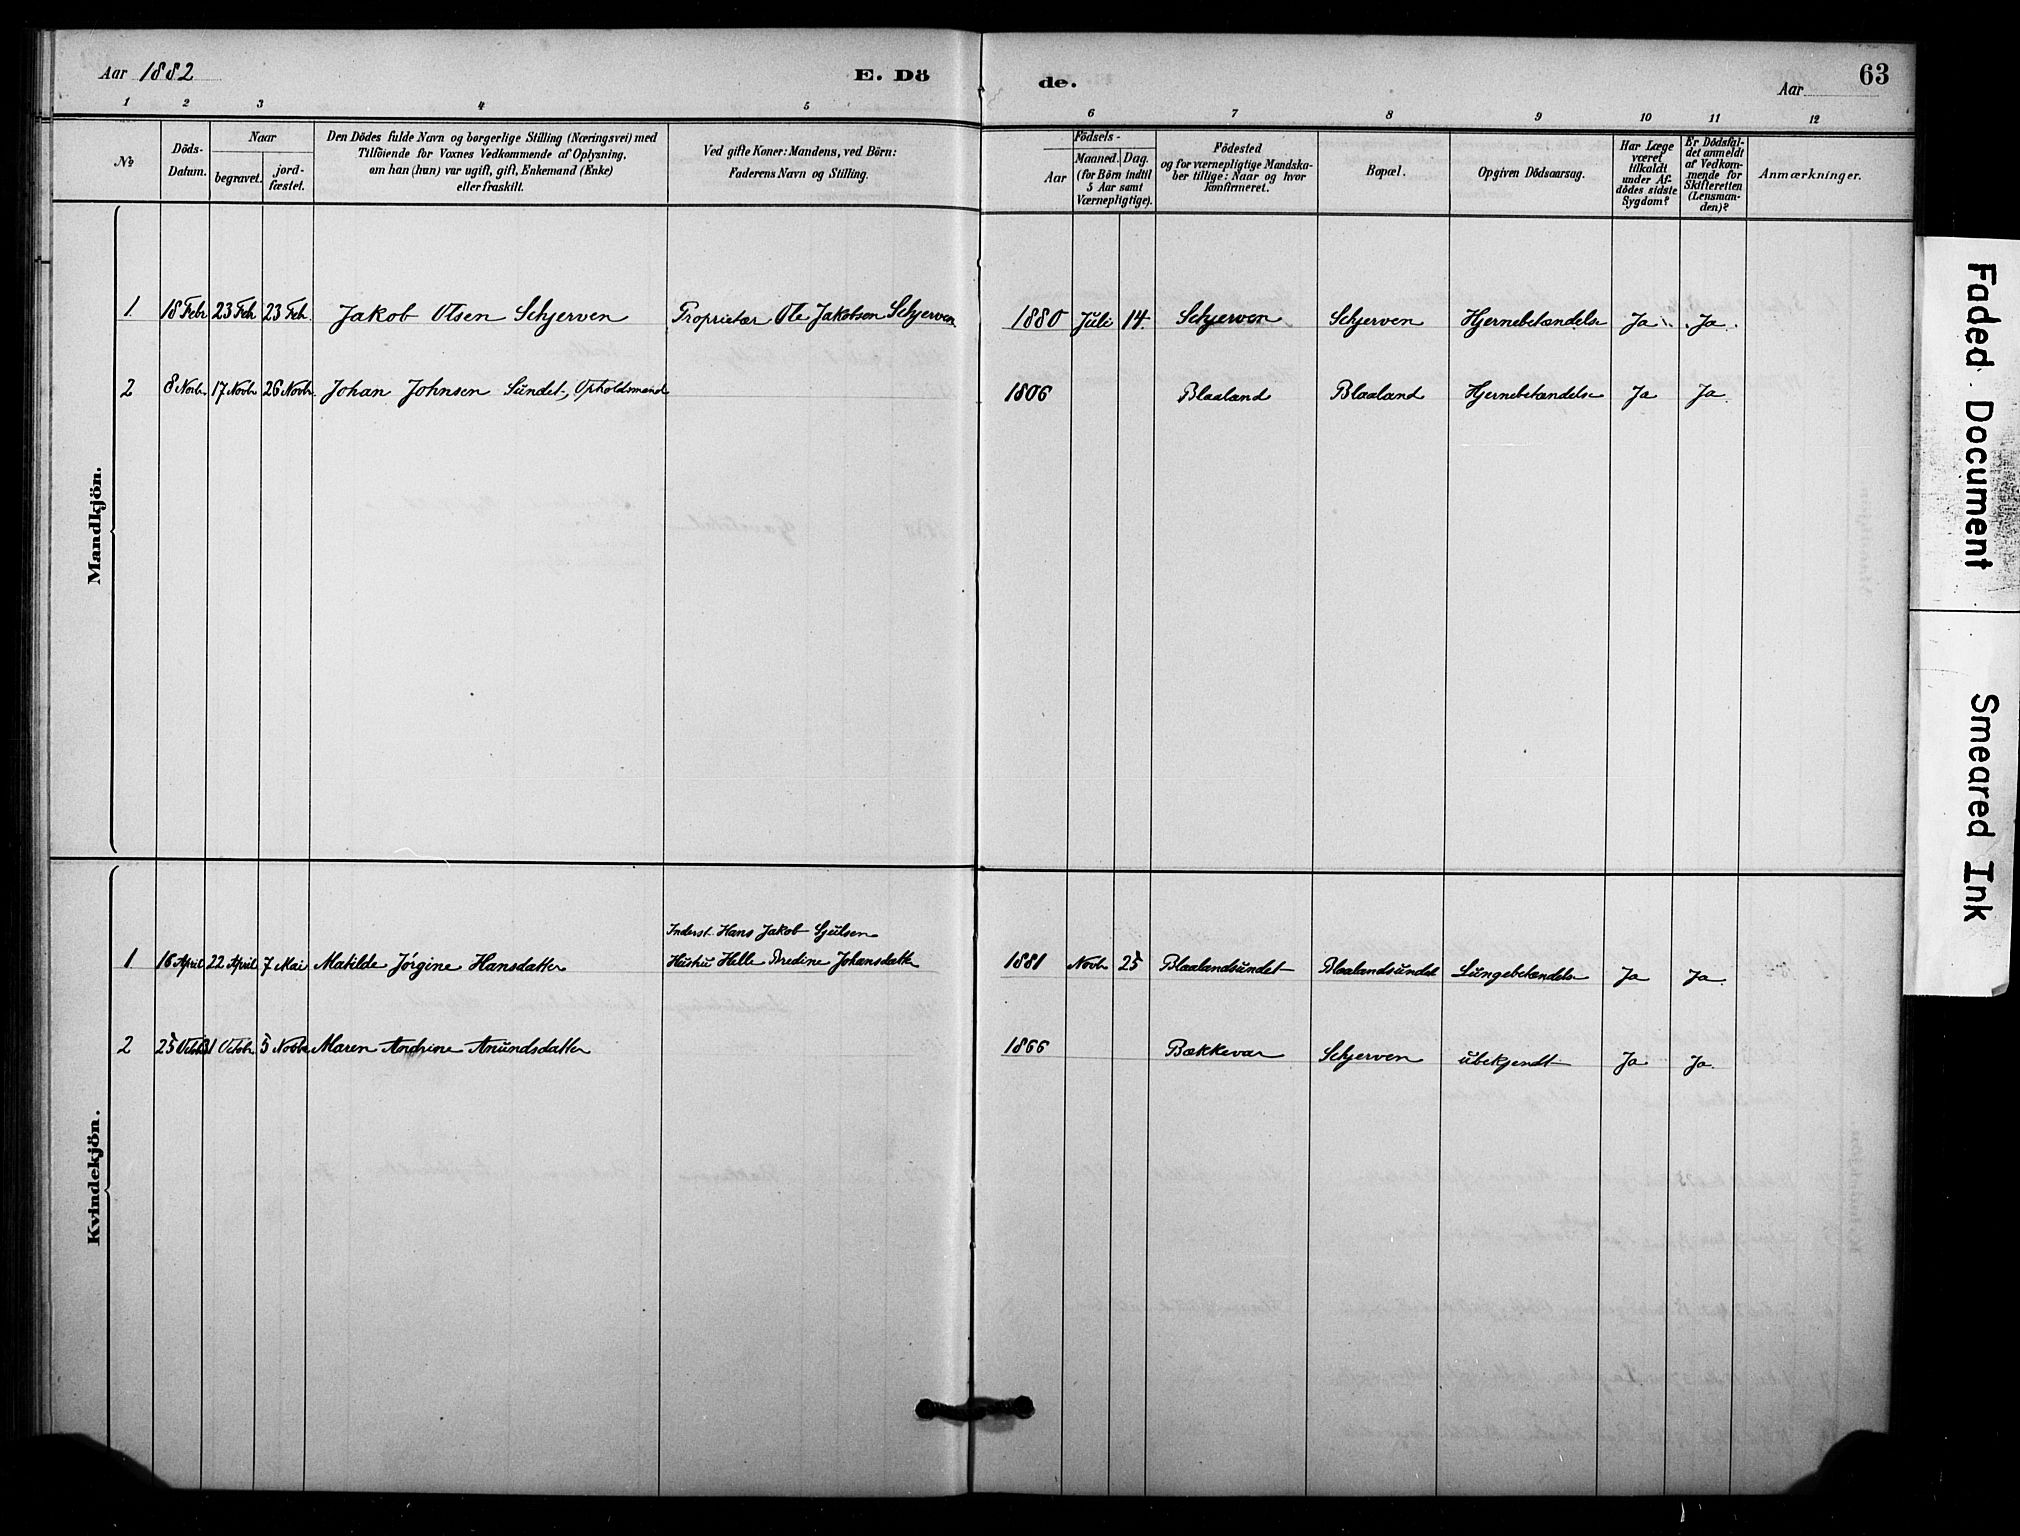 Aar 1882
E. Dö
de.
Aar
63
1 2 3 4 5 6 7 8 9 10 11 12
№
Döds-
Datum.
Naar
begravet.
jord-
fæstet.
Den Dödes fulde Navn og borgerlige Stilling (Næringsvei) med
Tilföiende for Voxnes Vedkommende af Oplysning,
om han (hun) var ugift, gift, Enkemand (Enke)
eller fraskilt.
Ved gifte Koner: Mandens, ved Börn:
Faderens Navn og Stilling.
Födsels-
Aar
Maaned. Dag.
(for Börn indtil
5 Aar samt
Værnepligtige).
Födested
og for værnepligtige Mandska-
ber tillige: Naar og hvor
konfirmeret.
Bopæl.
Opgiven Dödsaarsag.
Har Læge
været
tilkaldt
under Af-
dödes sidste
Sygdom?
Er Dödsfal-
det anmeldt
af Vedkom-
mende for
Skifteretten
(Lensman-
den)?
Anmærkninger.
Mandkjön.
1 18 Febr 23 Feb. 23 Feb. Jakob Olsen Schjerven Proprietær Ole Jakobsen Schjerven 1880 Juli 14 Schjerven Schjerven Hjernebetændelse Ja Ja.
2 8 Novbr 17 Novbr 26 Novbr. Johan Johnsen Sundet, Opholdsmand 1806 Blaaland Blaaland Hjernebetændelse Ja Ja.
Kvindekjön.
Inderst Hans Jakob
1 18 April 22 April 7 Mai Matilde Jörgine Hansdatter Hustru Helle Johansdatter 1881 Novbr 25 Blaalandsundet Blaalandsundet Lungebetændelse Ja Ja.
2 25 Octob 31 Octobr 5 Novbr Maren Andrine Anundsdatter 1866 Bækkevar Schjerven ubekjendt Ja Ja.
Faded Document
Smeared Ink